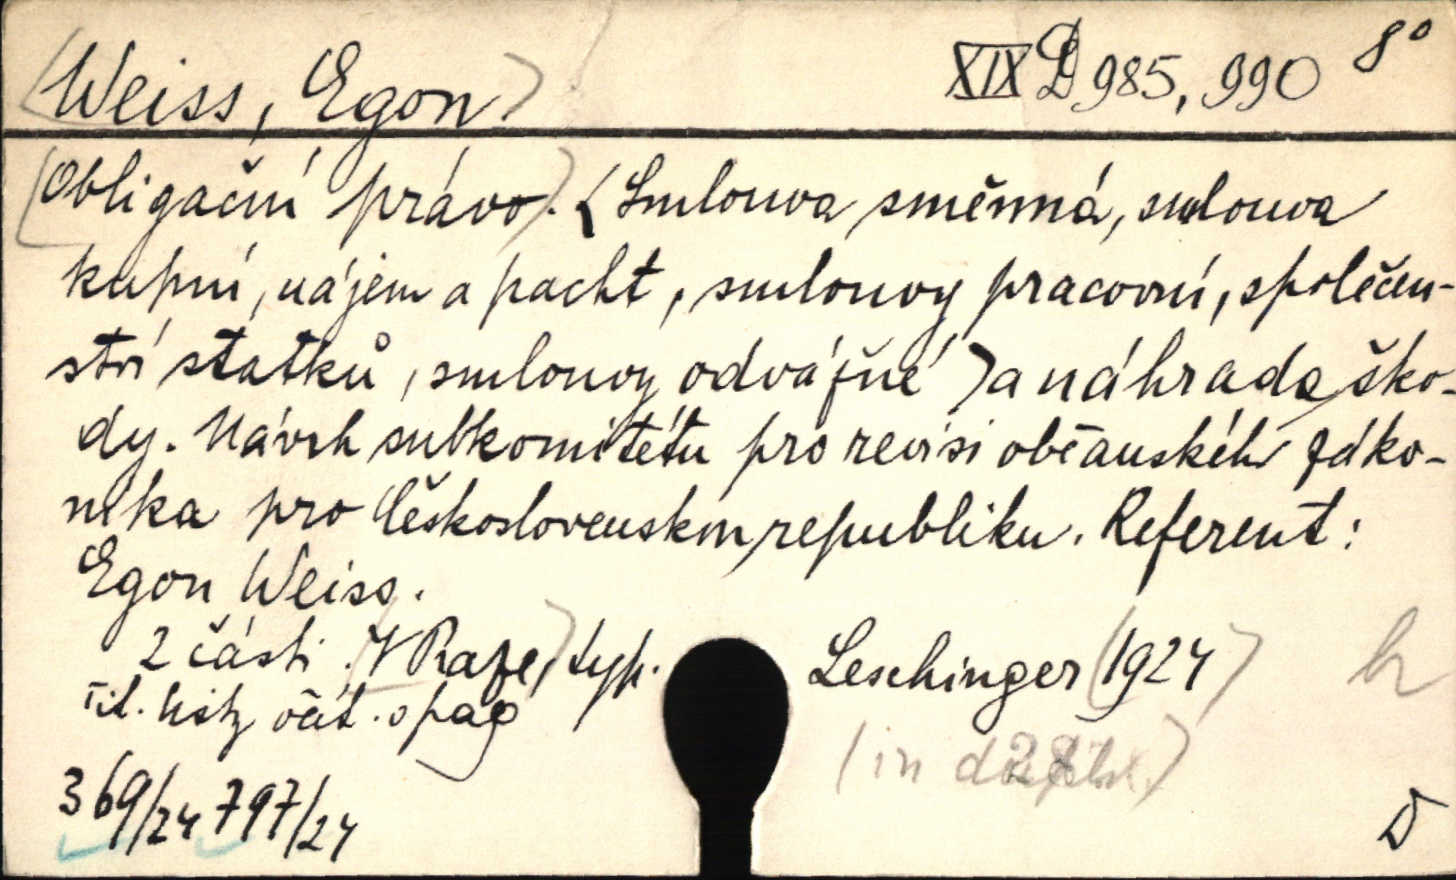 Weiss, Egon XIX D 985, 990 8°
Obligační právo. (Smlouva směnná, smlouva
kupní, nájem a pacht, smlouvy pracovní, společen-
ství statků, smlouvy odvážné) a náhrada ško-
dy. Návrh subkomitétu pro revisi občanského záko-
níka pro Československou republiku. Referent:
Egon Weiss.
2 části. V Praze, typ. Leschinger 1924
Tit. listy očít. pag
(in
369/24 797/24
D